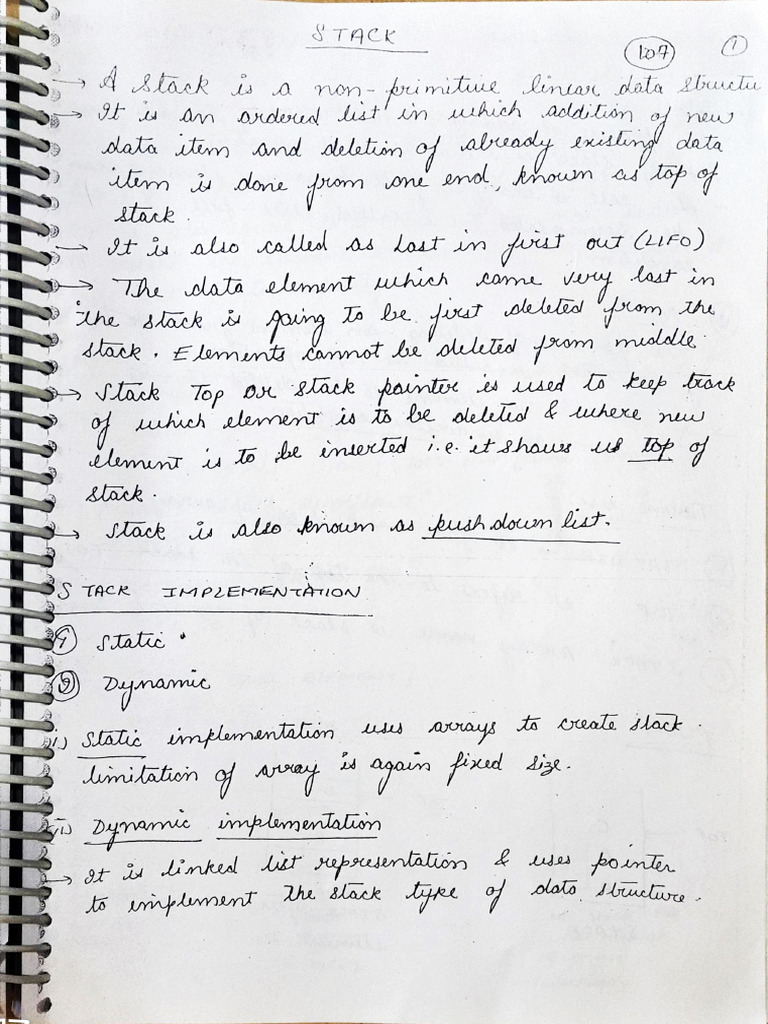 STACK
107
1
→ A Stack is a non-primitive linear data structu
→ It is an ordered list in which addition of new
data item and deletion of already existing data
item is done from one end, known as top of
stack.
→ It is also called as Last in first out (LIFO)
→ The data element which came very last in
the stack is going to be first deleted from the
stack. Elements cannot be deleted from middle.
→ Stack Top or Stack pointer is used to keep track
of which element is to be deleted & where new
element is to be inserted i.e. it shows us top of
stack.
→ Stack is also known as push down list.
STACK IMPLEMENTATION
1 Static
2 Dynamic
i) Static implementation uses arrays to create stack.
limitation of array is again fixed size.
ii) Dynamic implementation
→ It is linked list representation & uses pointer
to implement the stack type of data structure.